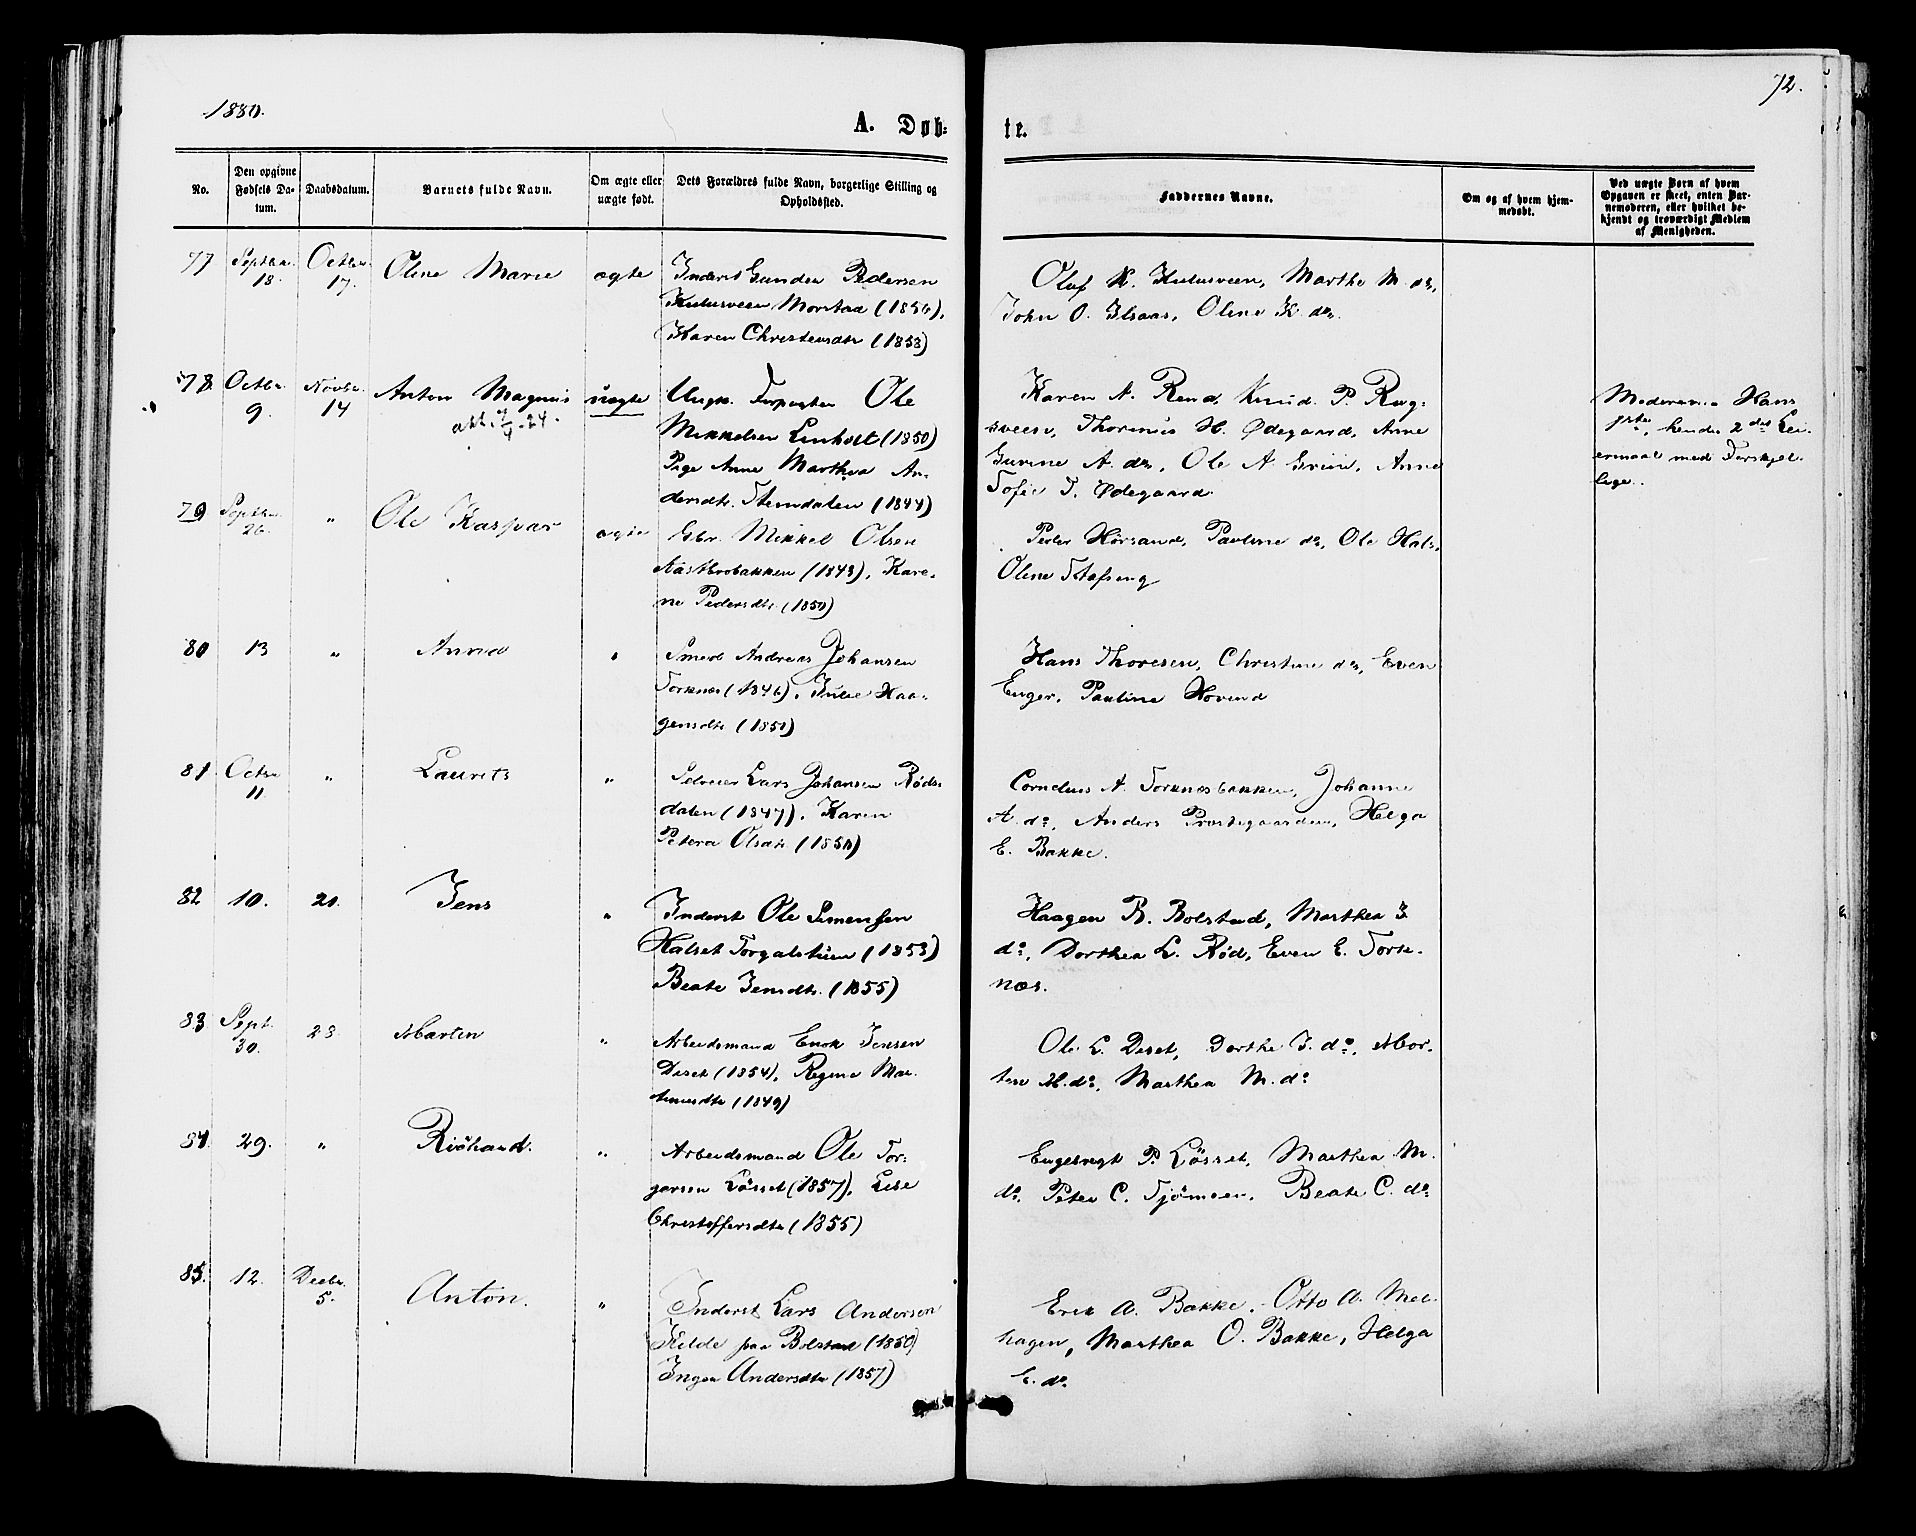 1880.
72.
A. Døb-
te.
No.
Den opgivne Fødsels Da-tum.
Daabsdatum.
Barnets fulde Navn.
Om ægte eller uægte født.
Dets Forældres fulde Navn, borgerlige Stilling og Opholdssted.
Faddernes Navne.
Om og af hvem hjem-medøbt.
Ved uægte Børn af hvem Opgaven er skeet, enten Bar-nemoderen, eller hvilket be-kjendt og troværdigt Medlem af Menigheden.
77 Septbr. 18. Octbr. 17. Oline Marie ægte
Inderst Gunder Pedersen
Morstad (1856),
Karen Christensdtr (1858)
Oluf K. Martha M. do,
John O. Oline K. do.
78. Octbr. 9. Novbr. 14 Anton Magnus uægte
att. 7/4-24.
Ungk. Ole
Mikkelsen Linholt (1850)
Pige Anne Marthea An-
dersdtr. Stendalen (1844)
Karen A. Knud P. Rug-
sveen, Thorinus H. Ødegaard, Anne
Gurine A. do, Ole A. Anne
Sofie T. Ødegaard.
Moderen. Hans
1ste, hendes 2det Lei-
ermaal med Forskjel-
lige.
79 Septbr. 26. " Ole Kaspar ægte
Gbr. Mikkel Olsen
(1848), Kare-
ne Pedersdtr. (1850)
Peder Hørsand, Pauline do, Ole Hals,
Oline Stafseng
80 13 " Anna "
Smed Andreas Johansen
Torknes (1846), Julie Haa-
gensdtr (1850)
Hans Thoresen, Christine do, Even
Enger, Pauline Hovind
81. Octbr 11. " Laurits "
Selveier Lars Johansen Røds-
dalen (1847), Karen
Petera Olsdtr. (1850)
Cornelius A. Torknesbakken, Johanne
A. do, Anders Præstegaarden, Helga
E. Bakke.
82 10. 21. Jens "
Inderst Ole Simensen
Halset (1853)
Beate Jensdtr. (1855)
Haagen B. Bolstad, Marthea J
do, Dorthea L. Rød, Even E. Tork-
nes.
83 Sept. 30. 28. Martin "
Arbeidsmand Enok Jensen
Diset (1854), Regine Mar-
tinusdtr (1849)
Ole L. Diset, Dorthe J. do, Mor-
ten M. do, Marthea M. do
84. 29. " Richard. "
Arbeidsmand Ole Tor-
gersen Løsset (1857), Lise
Christoffersdtr (1855)
Engebregt P. Løsset, Marthea M.
do, Peter C. Tjømoen, Beate C. do
85. 12. Decbr. 5. Anton. "
Inderst Lars Andersen
Kilde paa Bolstad (1850)
Ingea Andersdtr (1857)
Erik A. Bakke, Otto A. Mel-
hagen, Marthea O. Bakke, Helga
E. do